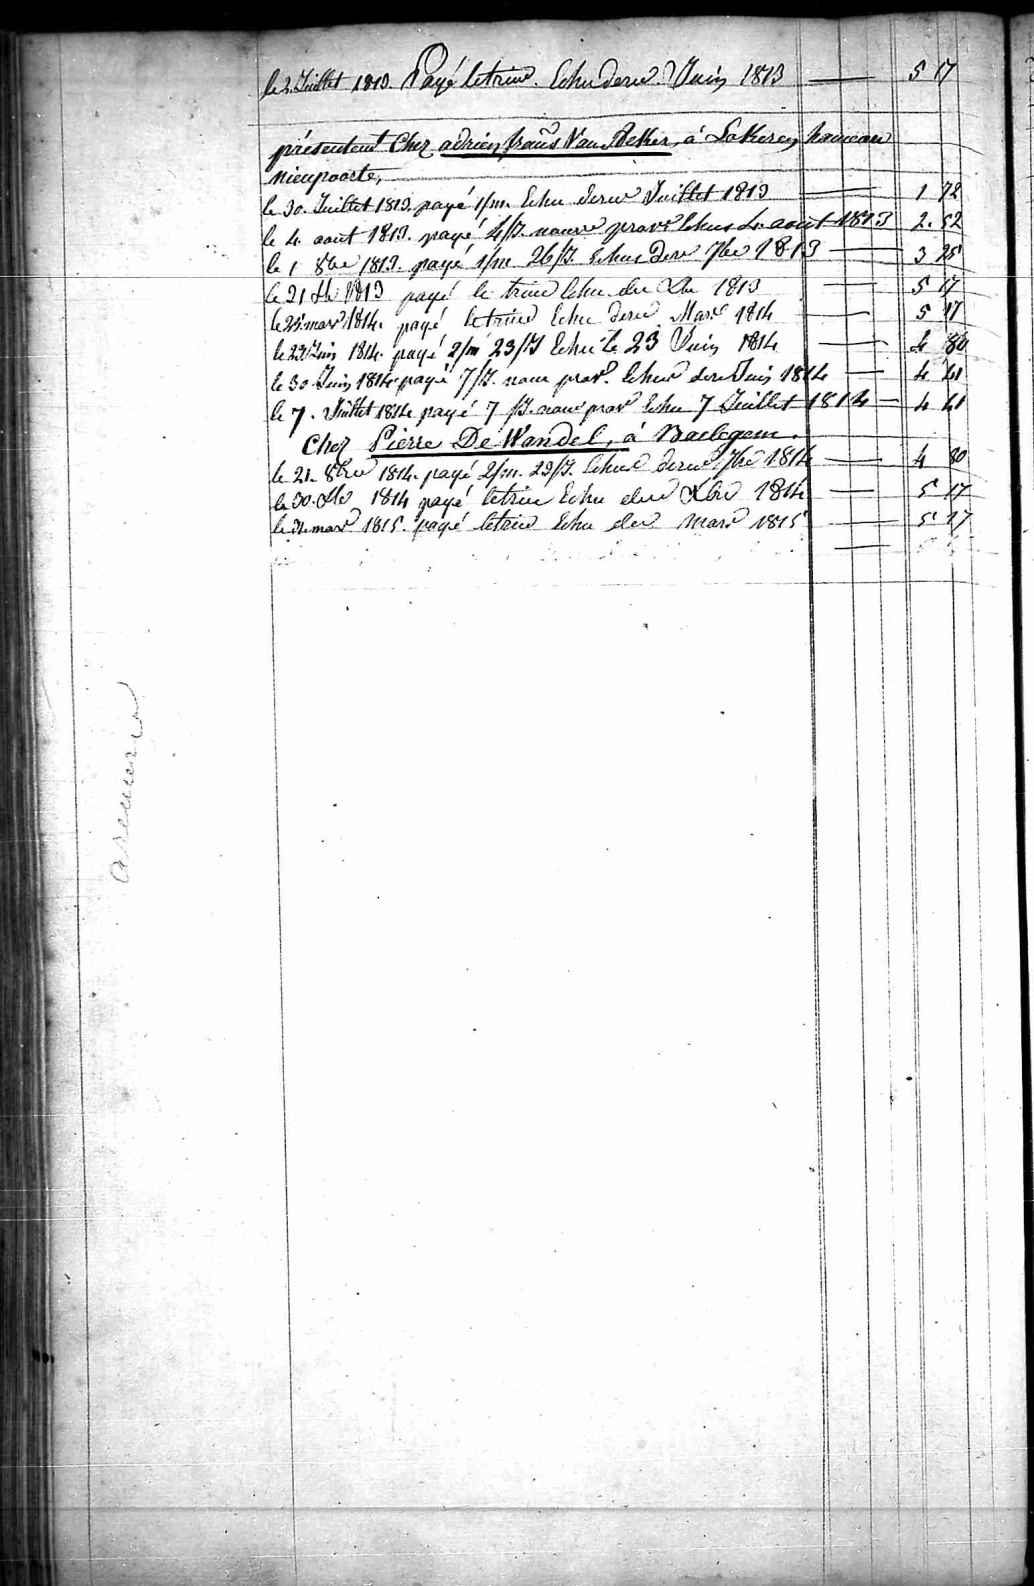 le 2. Juillet 1813. Payé letrime. Echu dere. Juin 1813 5 17
présentent Chez adrien frans Van Acker, à Lokeren hameau
nieupoorte,
le 30. Juillet 1813. payé 1/m. Echu dere Juillet 1813 1 72
le 4. aout 1813. payé 4/J. nourre provre Echus 4. aout 1813 2. 52
le 1 8bre 1813. payé 1/m 26/J. Echus dere 7bre 1813 3 25
le 21 Xb 1813 payé le trime Echu du Xbre 1813 5 17
le 25 mars 1814. payé letrime Echu dere Mars 1814 5 17
le 23 Juin 1814. payé 2/m 23/J Echu le 23 Juin 1814 4 80
le 30. Juin 1814. payé 7/J. nour prov. Echus dere Juin 1814 4 41
le 7. Juillet 1814 payé 7/J. nour prov Echu 7 Juillet 1814 4 41
Chez Pierre De Wandel, à Baelegem.
le 21. 8bre 1814. payé 2/m. 23/J. Echus dere 7bre 1814 4 80
le 30. Xb 1814 payé letrime Echu dere Xbre 1814 5 17
le 31. mars 1815. payé letrime Echu der mars 1815 5 17